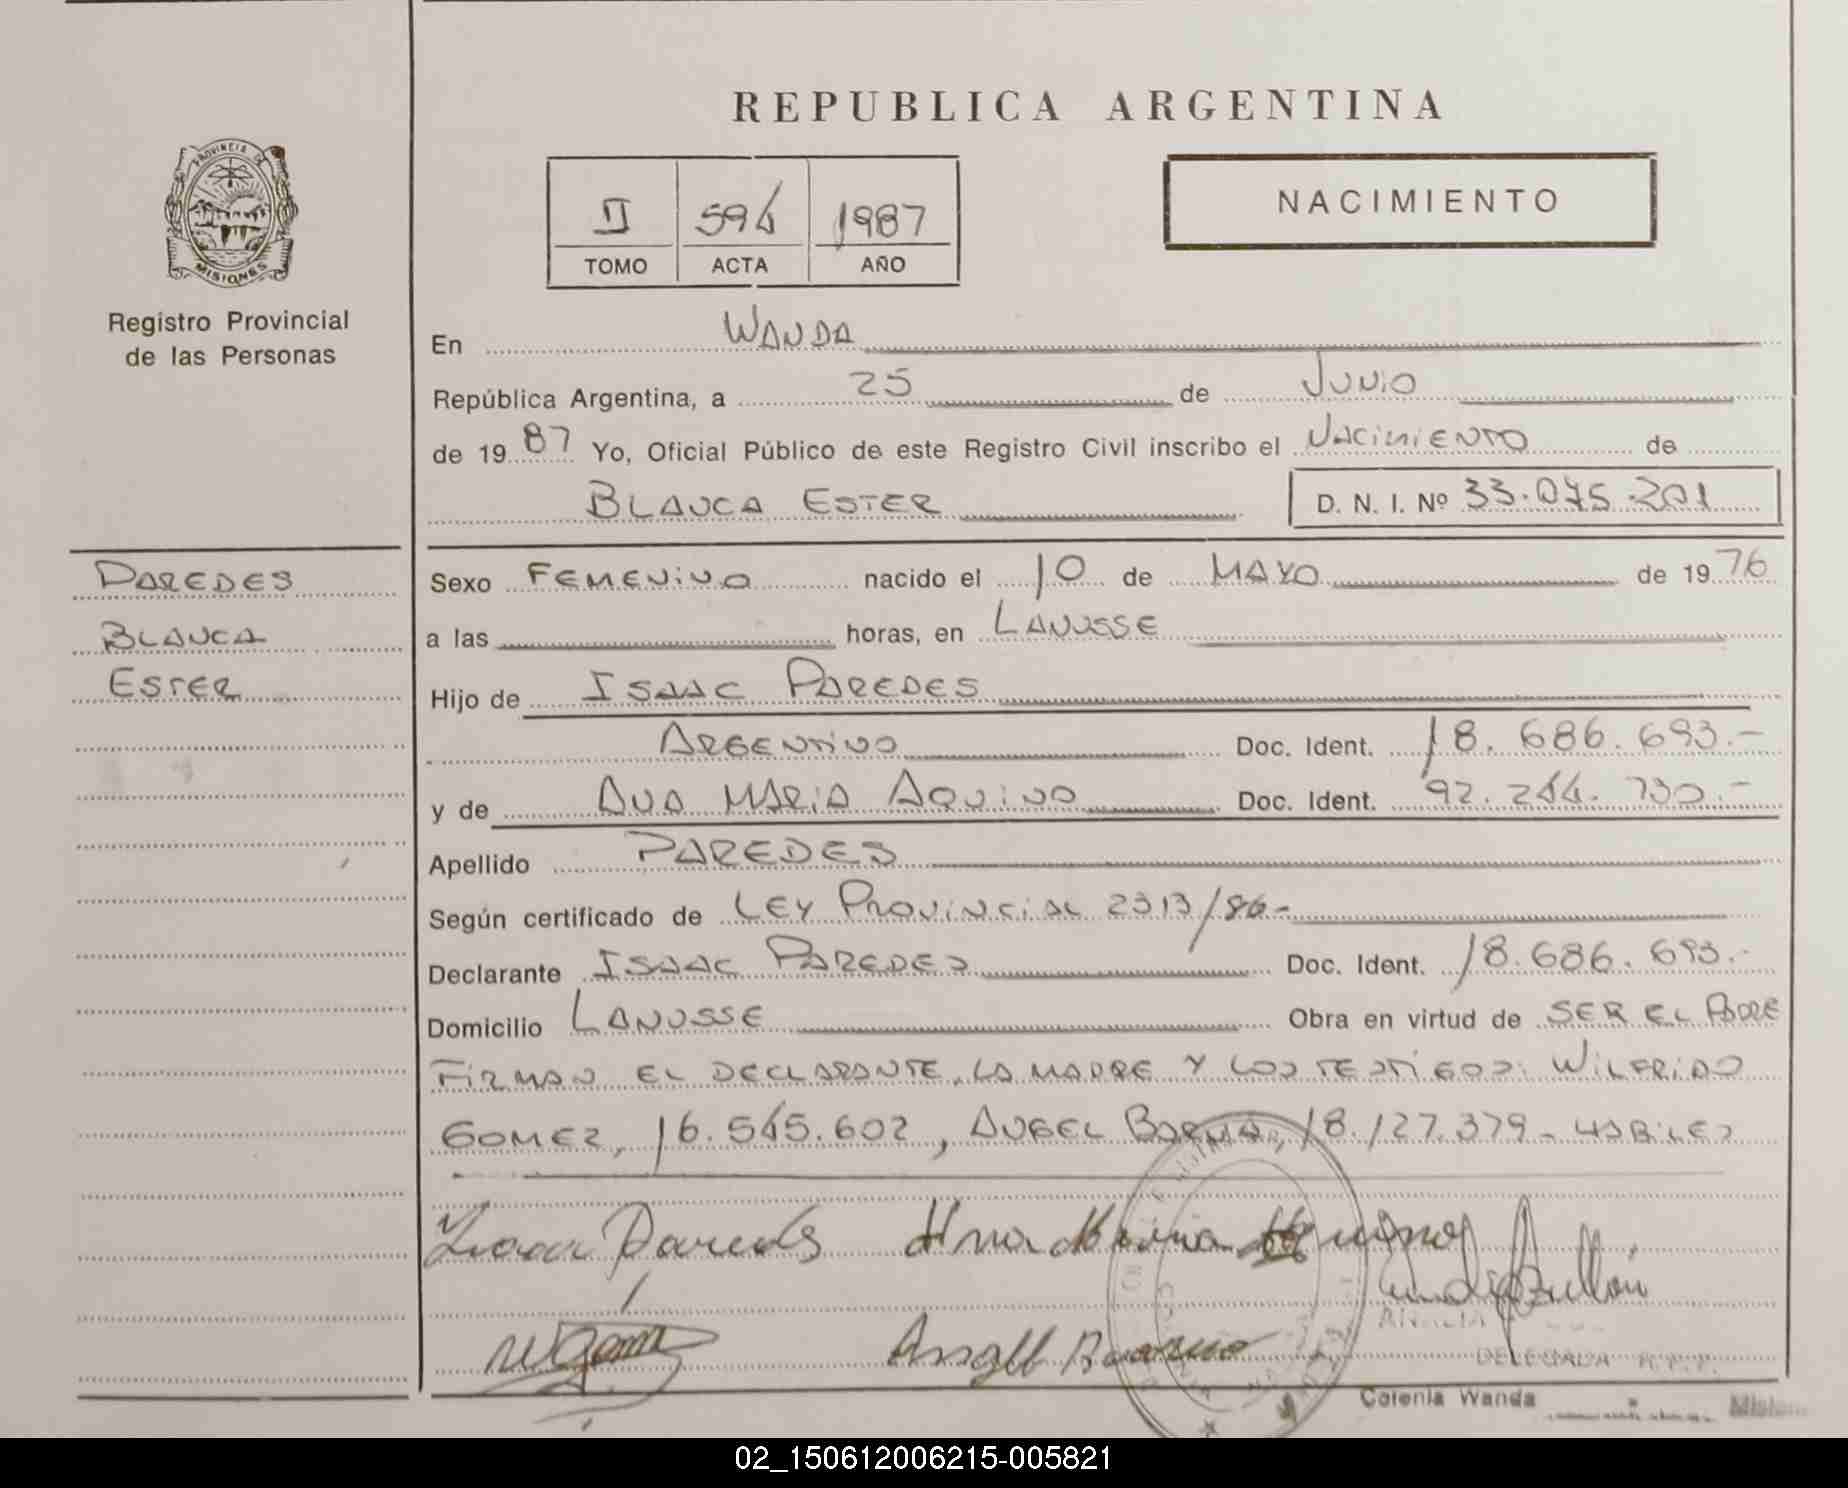 REPUBLICA ARGENTINA
PROVINCIA DE
MISIONES
Registro Provincial
de las Personas
II 594 1987
TOMO ACTA AÑO
NACIMIENTO
En WANDA
República Argentina, a 25 de JUNIO
de 1987 Yo, Oficial Público de este Registro Civil inscribo el NACIMIENTO de
BLANCA ESTER D. N. I. Nº 33.075.201
PAREDES
BLANCA
ESTER
Sexo FEMENINO nacido el 10 de MAYO de 1976
a las horas, en LANUSSE
Hijo de ISAAC PAREDES
ARGENTINO Doc. Ident. 18.686.693.-
y de ANA MARIA AQUINO Doc. Ident. 92.244.730.-
Apellido PAREDES
Según certificado de LEY PROVINCIAL 2313/86-
Declarante ISAAC PAREDES Doc. Ident. 18.686.693.-
Domicilio LANUSSE Obra en virtud de SER EL PADRE
FIRMAN EL DECLARANTE, LA MADRE Y LOS TESTIGOS: WILFRIDO
GOMEZ, 16.545.602, ANGEL 18.127.379- HABILES
Paredes Ana Maria
DELEGADA R.P.P.
Colonia Wanda Misiones
02_150612006215-005821